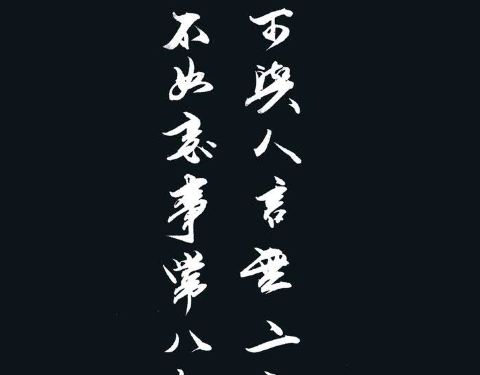 可與人言無二
不如意事常八